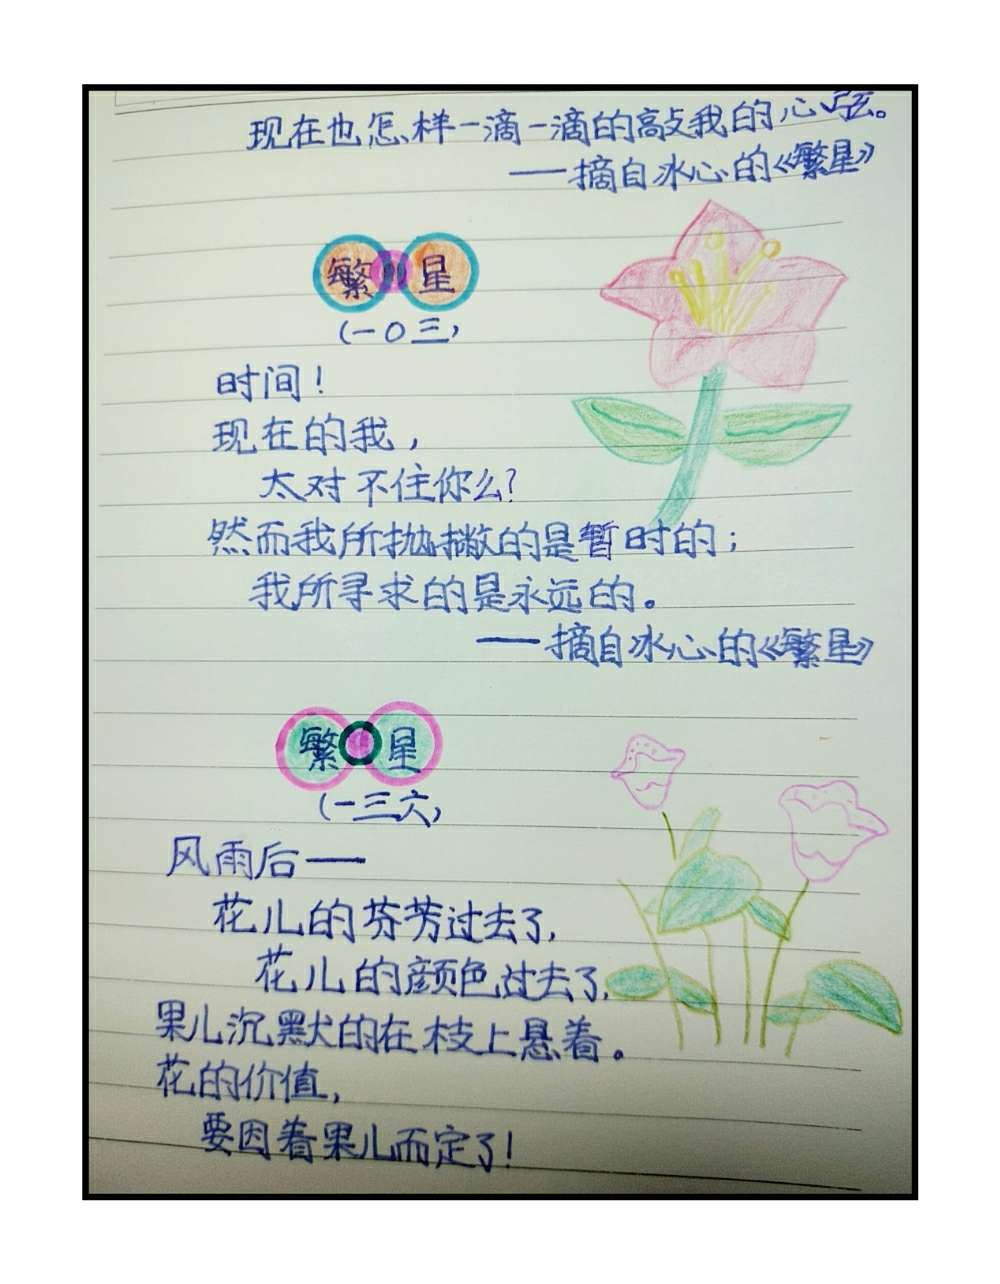 现在也怎样一滴一滴的敲我的心弦。
——摘自冰心的《繁星》
繁星
(一0三)
时间！
现在的我，
太对不住你么？
然而我所抛撇的是暂时的；
我所寻求的是永远的。
——摘自冰心的《繁星》
繁星
(一三六)
风雨后——
花儿的芬芳过去了，
花儿的颜色过去了，
果儿沉默的在枝上悬着。
花的价值，
要因着果儿而定了！